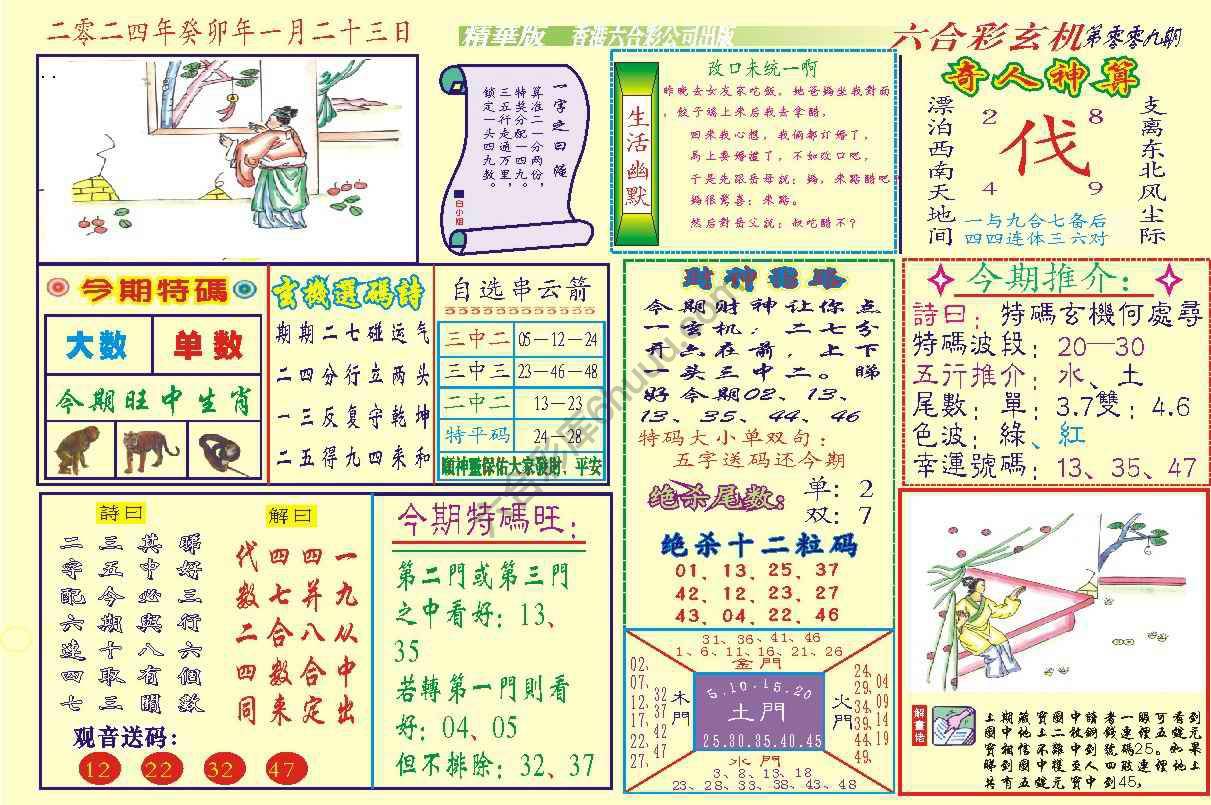 二零二四年癸卯年一月二十三日
精華版 香港六合彩公司出版
六合彩玄机第零零九期
一字之曰隨
算准二一分两份，
特奖分配一四九。
三五行走通万里，
锁定一头四九数。
白小姐
生活幽默
改口未统一啊
昨晚去女友家吃飯，她爸媽坐我對面
，餃子端上来后我去拿醋，
回来我心想，我俩都订婚了，
馬上要婚禮了，不如改口吧，
于是先跟岳母説：媽，来點醋吧
媽很驚喜：来點。
然后對岳父説：叔吃醋不？
奇人神算
漂泊西南天地间
2 8
伐
4 9
支离东北风尘际
一与九合七备后
四四连体三六对
今期特碼
大数 单数
今期旺中生肖
玄機選碼詩
期期二七碰运气
二四分行立两头
一三反复守乾坤
二五得九四来和
自选串云箭
三中二 05—12—24
三中三 23—46—48
二中二 13—23
特平码 24—28
願神靈保佑大家發財，平安
今期财神让你点
一玄机，二七分
开六在前，上下
一头三中二。睇
好今期02、13、
13、35、44、46
特码大小单双句：
五字送码还今期
绝杀尾数： 单：2
双：7
绝杀十二粒码
01、13、25、37
42、12、23、27
43、04、22、46
今期推介：
詩曰：特碼玄機何處尋
特碼波段：20—30
五行推介：水、土
尾數：單：3.7雙：4.6
色波：綠、紅
幸運號碼：13、35、47
詩曰
睇好三行六個數
其中必與八有關
三五今期十取三
二字配六連四七
解曰
一九从中出
四并八合定
四七合数来
代数二四同
观音送码：
12 22 32 47
今期特碼旺：
第二門或第三門
之中看好：13、
35
若轉第一門則看
好：04、05
但不排除：32、37
31、36、41、46
1、6、11、16、21、26
金門
02、07、12、17、22、27、
32、37、42、47
木門
5.10.15.20
土門
25.30.35.40.45
火門
24、29、34、39、44、49、
04、09、14、19
水門
3、8、13、18
23、28、33、38、43、48
解畫佬
上期藏寶圖中讀者一眼可看到
圖中地上二枚銅錢連裡五錠元
寶相信不難中到號碼25。如果
睇到圖中樓至人四肢連裡地上
共有五錠元寶中到45，